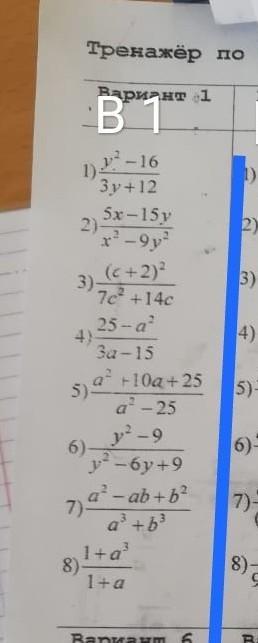 Тренажёр по
Вариант 1
В 1
1) (y² − 16)/(3y + 12)
2) (5x − 15y)/(x² − 9y²)
3) (c + 2)²/(7c² + 14c)
4) (25 − a²)/(3a − 15)
5) (a² + 10a + 25)/(a² − 25)
6) (y² − 9)/(y² − 6y + 9)
7) (a² − ab + b²)/(a³ + b³)
8) (1 + a³)/(1 + a)
1)
2)
3)
4)
5)
6)
7)
8)
Вариант 6